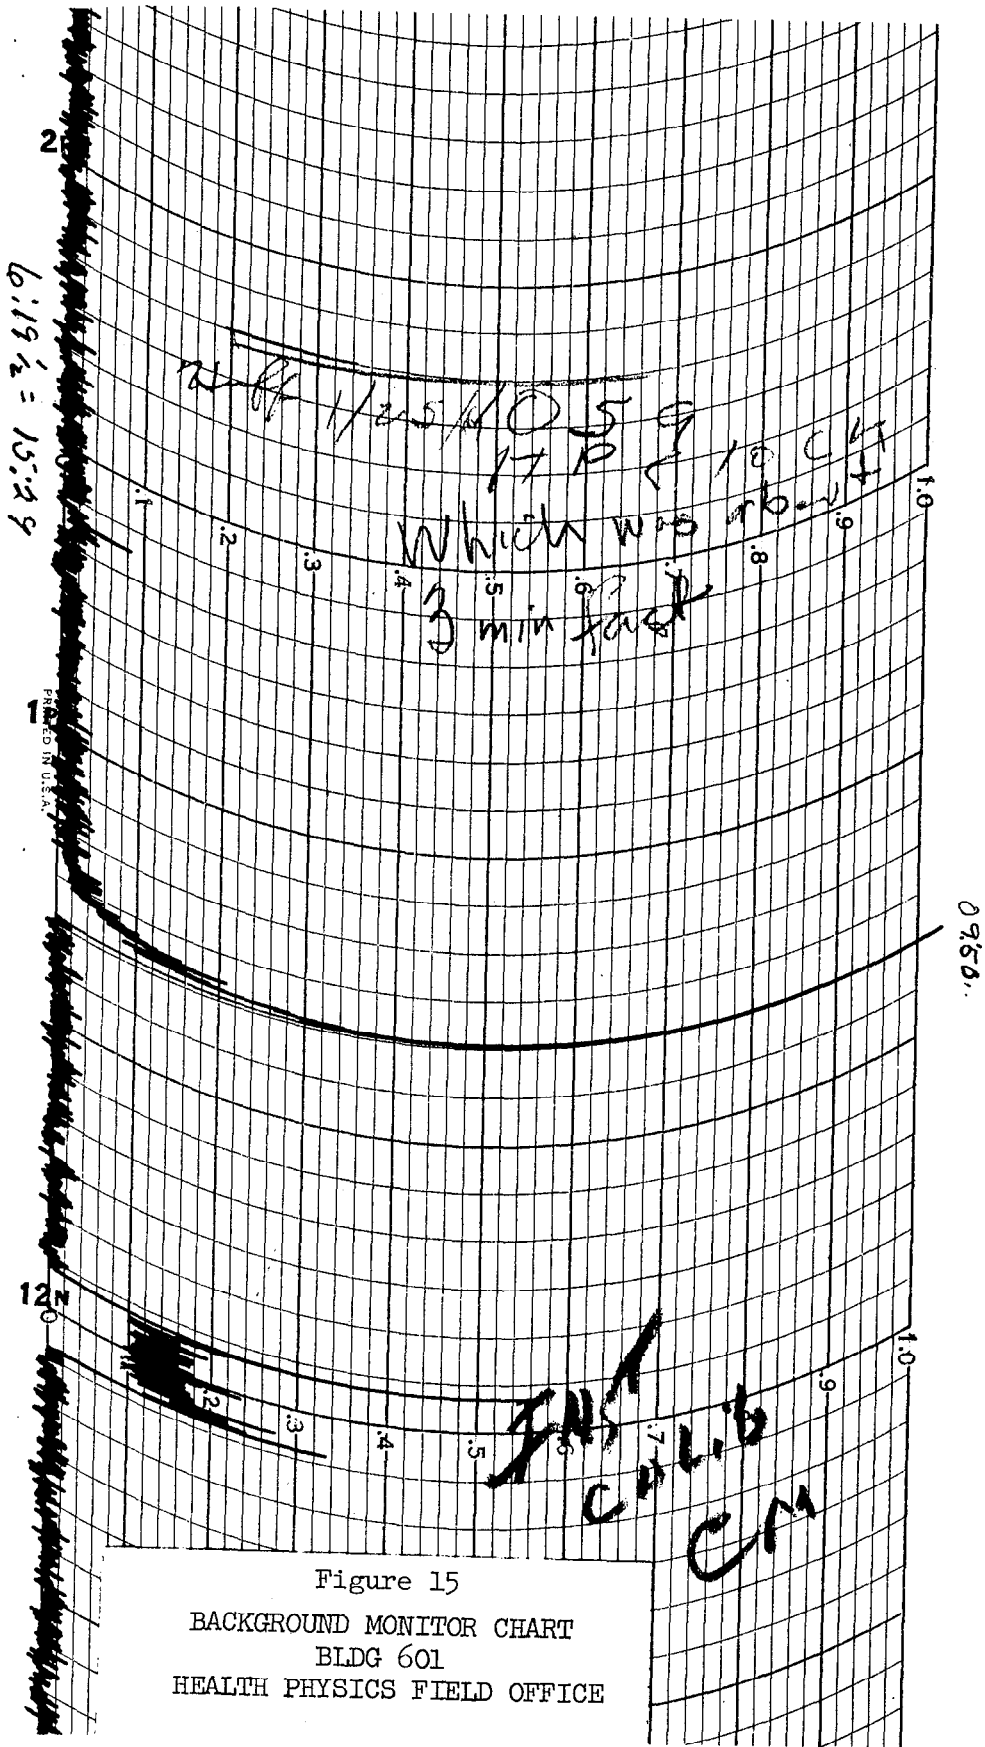 2
6:19½ = 15.29
1/25/ 1059
which was
3 min fast
.1 .2 .3 .4 .5 .6 .7 .8 .9 1.0
1
PRINTED IN U.S.A.
0950
12
0 .2 .3 .4 .5 .6 .7 .9 1.0
INST
CALIB
CM
Figure 15
BACKGROUND MONITOR CHART
BLDG 601
HEALTH PHYSICS FIELD OFFICE